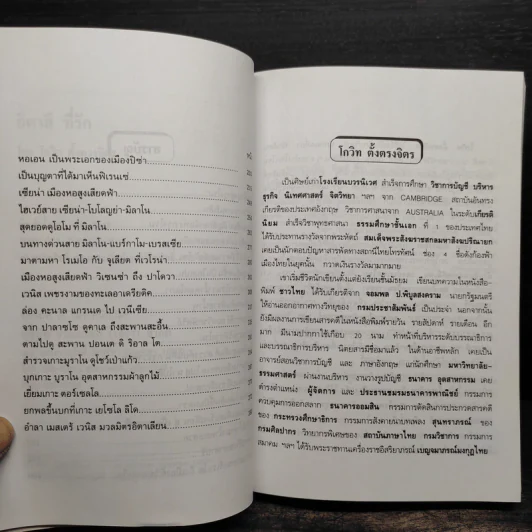 หอเอน เป็นพระเอกของเมืองปิซ่า
เป็นบุญตาที่ได้มาเห็นฟิเรนเซ่
เซียน่า เมืองหอสูงเสียดฟ้า
ไฮเวย์สาย เซียน่า-โบโลญย่า-มิลาโน
สุดยอดดูโอโม ที่ มิลาโน
บนทางด่วนสาย มิลาโน-แบร์กาโม-เบรสเซีย
มาตามหา โรเมโอ กับ จูเลียต ที่เวโรน่า
เมืองหอสูงเสียดฟ้า วิเซนซ่า ถึง ปาโดวา
เวนิส เพชรงามของทะเลอาเดรียติค
ล่อง คะนาล แกรนเด ไป เวนีเซีย
จาก ปาลาซโซ ดูคาเล ถึงสะพานสะอื้น
ตามไปดู สะพาน ปอนเต ดิ ริอาล โต
สำรวจเกาะมูราโน ดูโชว์เป่าแก้ว
บุกเกาะ บูราโน อุตสาหกรรมผ้าลูกไม้
เยี่ยมเกาะ ตอร์เซลโล
ยกพลขึ้นบกที่เกาะ เยโซโล ลิโด
อำลา เมสเตร้ เวนิส มวลมิตรอิตาเลียน
โกวิท ตั้งตรงจิตร
เป็นศิษย์เก่าโรงเรียนบวรนิเวศ สำเร็จการศึกษา วิชาการบัญชี บริหาร
ธุรกิจ นิเทศศาสตร์ จิตวิทยา ฯลฯ จาก CAMBRIDGE สถาบันอันทรง
เกียรติของประเทศอังกฤษ วิชาการศาสนา จาก AUSTRALIA ในระดับเกียรติ
นิยม สำเร็จวิชาพุทธศาสนา ธรรมศึกษาชั้นเอก ที่ 1 ของประเทศไทย
ได้รับประทานรางวัลจากพระหัตถ์ สมเด็จพระสังฆราชสกลมหาสังฆปริณายก
เคยเป็นนักตอบปัญหาสารพัดทางสถานีไทยโทรทัศน์ ช่อง 4 ชื่อดังก้องฟ้า
เมืองไทยในยุคนั้น กวาดเงินรางวัลมามากมาย
เขาเริ่มชีวิตนักเขียนตั้งแต่ยังเรียนชั้นมัธยม เขียนบทความในหนังสือ-
พิมพ์ ชาวไทย ได้รับเกียรติจาก จอมพล ป.พิบูลสงคราม นายกรัฐมนตรี
ให้อ่านออกอากาศทางวิทยุของ กรมประชาสัมพันธ์ เป็นประจำ นอกจากนั้น
ยังมีผลงานการเขียนสารคดีในหนังสือพิมพ์รายวัน รายสัปดาห์ รายเดือน อีก
มาก มีนามปากกาใช้เกือบ 20 นาม ทำหน้าที่บริหารระดับบรรณาธิการ
และบรรณาธิการบริหาร นิตยสารมีชื่อมาแล้ว ในด้านอาชีพหลัก เคยเป็น
อาจารย์สอนวิชาการบัญชี และ ภาษาอังกฤษ แก่นักศึกษา มหาวิทยาลัย-
ธรรมศาสตร์ ผ่านงานบริหาร งานวางรูปบัญชี ธนาคาร อุตสาหกรรม เคย
ดำรงตำแหน่ง ผู้จัดการ และ ประธานชมรมธนาคารพาณิชย์ กรรมการ
ควบคุมการออกสลาก ธนาคารออมสิน กรรมการตัดสินการประกวดสารคดี
ของ กระทรวงศึกษาธิการ กรรมการสังคายนาบทเพลง สุนทราภรณ์ ของ
กรมศิลปากร วิทยากรพิเศษของ สถาบันภาษาไทย กรมวิชาการ กรรมการ
สมาคม ฯลฯ ได้รับพระราชทานเครื่องราชอิสริยาภรณ์ เบญจมาภรณ์มงกุฎไทย